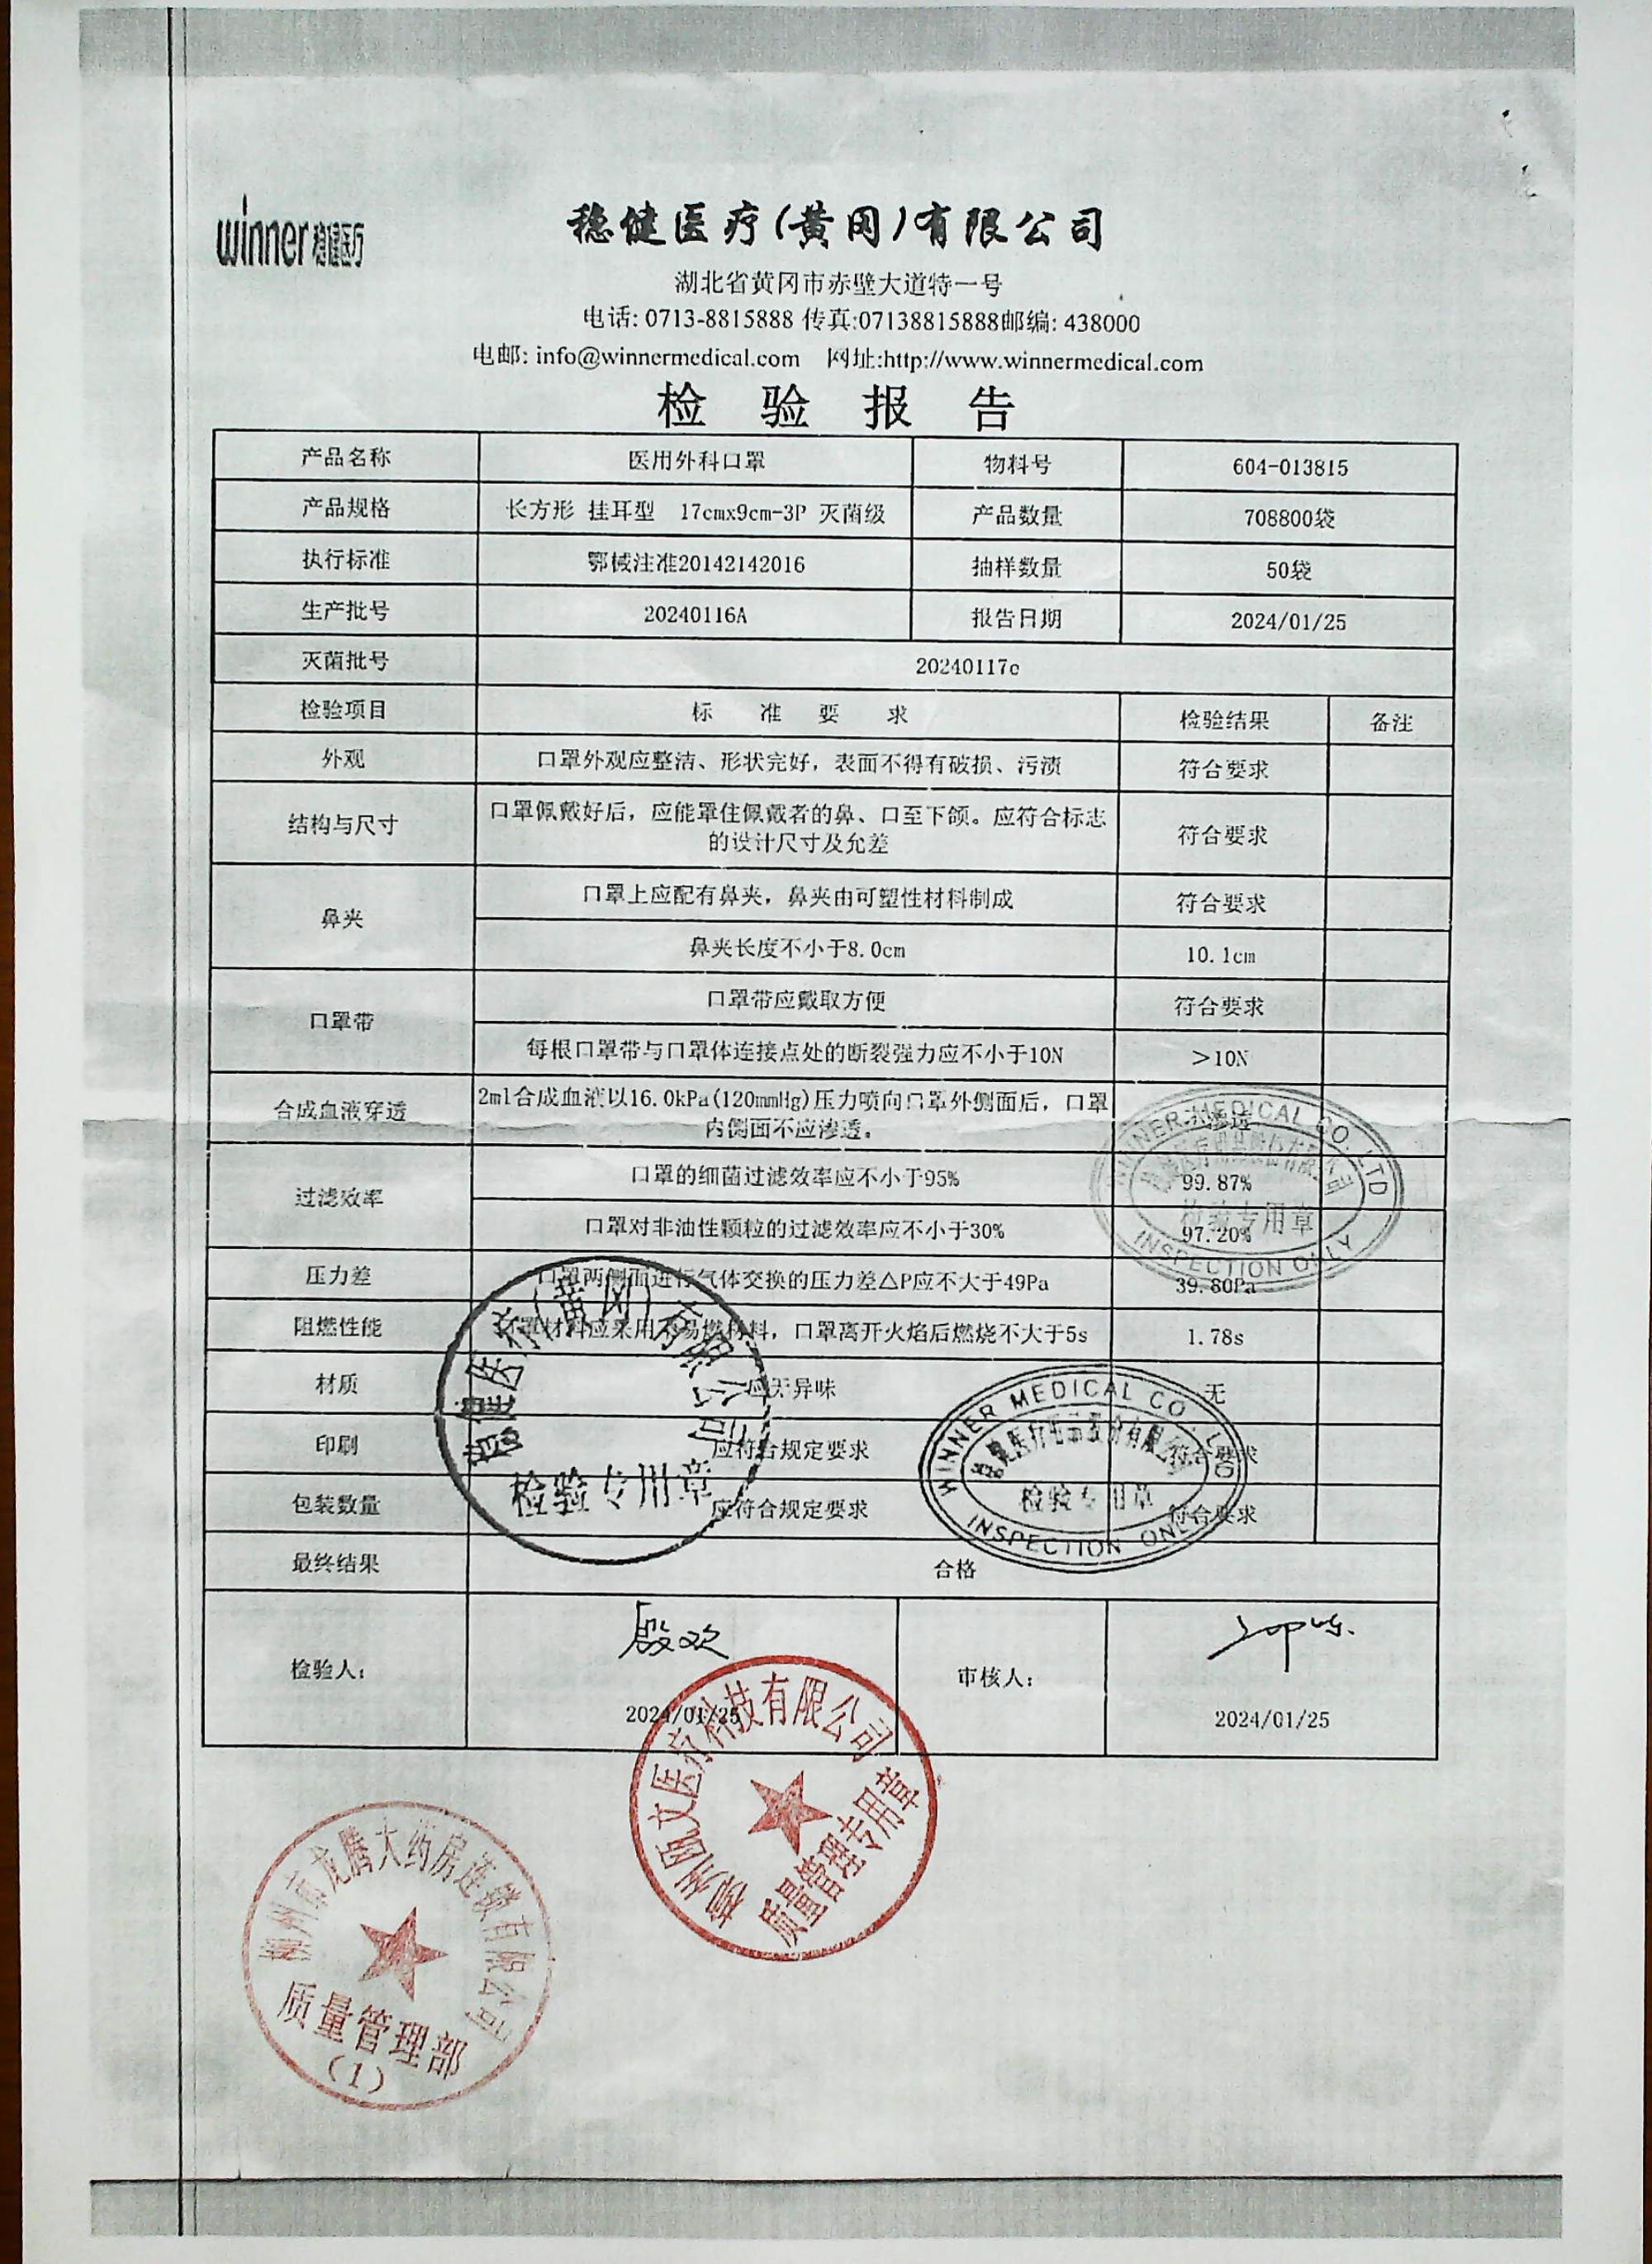 winner 稳健医疗
稳健医疗(黄冈)有限公司
湖北省黄冈市赤壁大道特一号
电话: 0713-8815888 传真:07138815888邮编: 438000
电邮: info@winnermedical.com 网址:http://www.winnermedical.com
检 验 报 告
产品名称 医用外科口罩 物料号 604-013815
产品规格 长方形 挂耳型 17cmx9cm-3P 灭菌级 产品数量 708800袋
执行标准 鄂械注准20142142016 抽样数量 50袋
生产批号 20240116A 报告日期 2024/01/25
灭菌批号 20240117c
检验项目 标 准 要 求 检验结果 备注
外观 口罩外观应整洁、形状完好，表面不得有破损、污渍 符合要求
结构与尺寸 口罩佩戴好后，应能罩住佩戴者的鼻、口至下颌。应符合标志
的设计尺寸及允差 符合要求
鼻夹 口罩上应配有鼻夹，鼻夹由可塑性材料制成 符合要求
鼻夹长度不小于8.0cm 10.1cm
口罩带 口罩带应戴取方便 符合要求
每根口罩带与口罩体连接点处的断裂强力应不小于10N >10N
合成血液穿透 2ml合成血液以16.0kPa(120mmHg)压力喷向口罩外侧面后，口罩
内侧面不应渗透。 渗透
过滤效率 口罩的细菌过滤效率应不小于95% 99.87%
口罩对非油性颗粒的过滤效率应不小于30% 97.20%
压力差 口罩两侧面进行气体交换的压力差△P应不大于49Pa 39.80Pa
阻燃性能 口罩材料应采用不易燃材料，口罩离开火焰后燃烧不大于5s 1.78s
材质 应无异味 无
印刷 应符合规定要求 符合要求
包装数量 应符合规定要求 符合要求
最终结果 合格
检验人: 殷欢 2024/01/25 审核人: 2024/01/25
WINNER MEDICAL CO. LTD
检验专用章
INSPECTION ONLY
稳健医疗(黄冈)有限公司
检验专用章
WINNER MEDICAL CO. LTD
检验专用章
INSPECTION ONLY
柳州瓯文医疗科技有限公司
质量管理专用章
柳州市龙腾大药房连锁有限公司
质量管理部
(1)